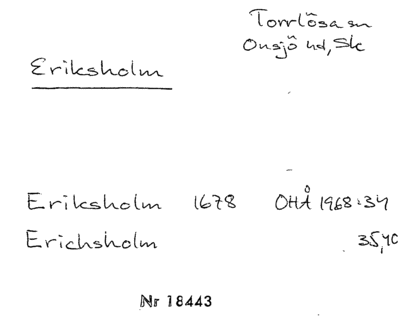 Torrlösa sn
Onsjö hd, Sk
Eriksholm
Eriksholm 1678 OHÅ 1968:34
Erichsholm 35,40
Nr 18443